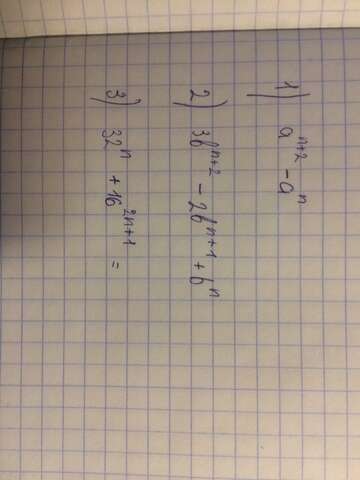 1) a^{n+2} - a^n
2) 3b^{n+2} - 2b^{n+1} + b^n
3) 32^n + 16^{2n+1} =